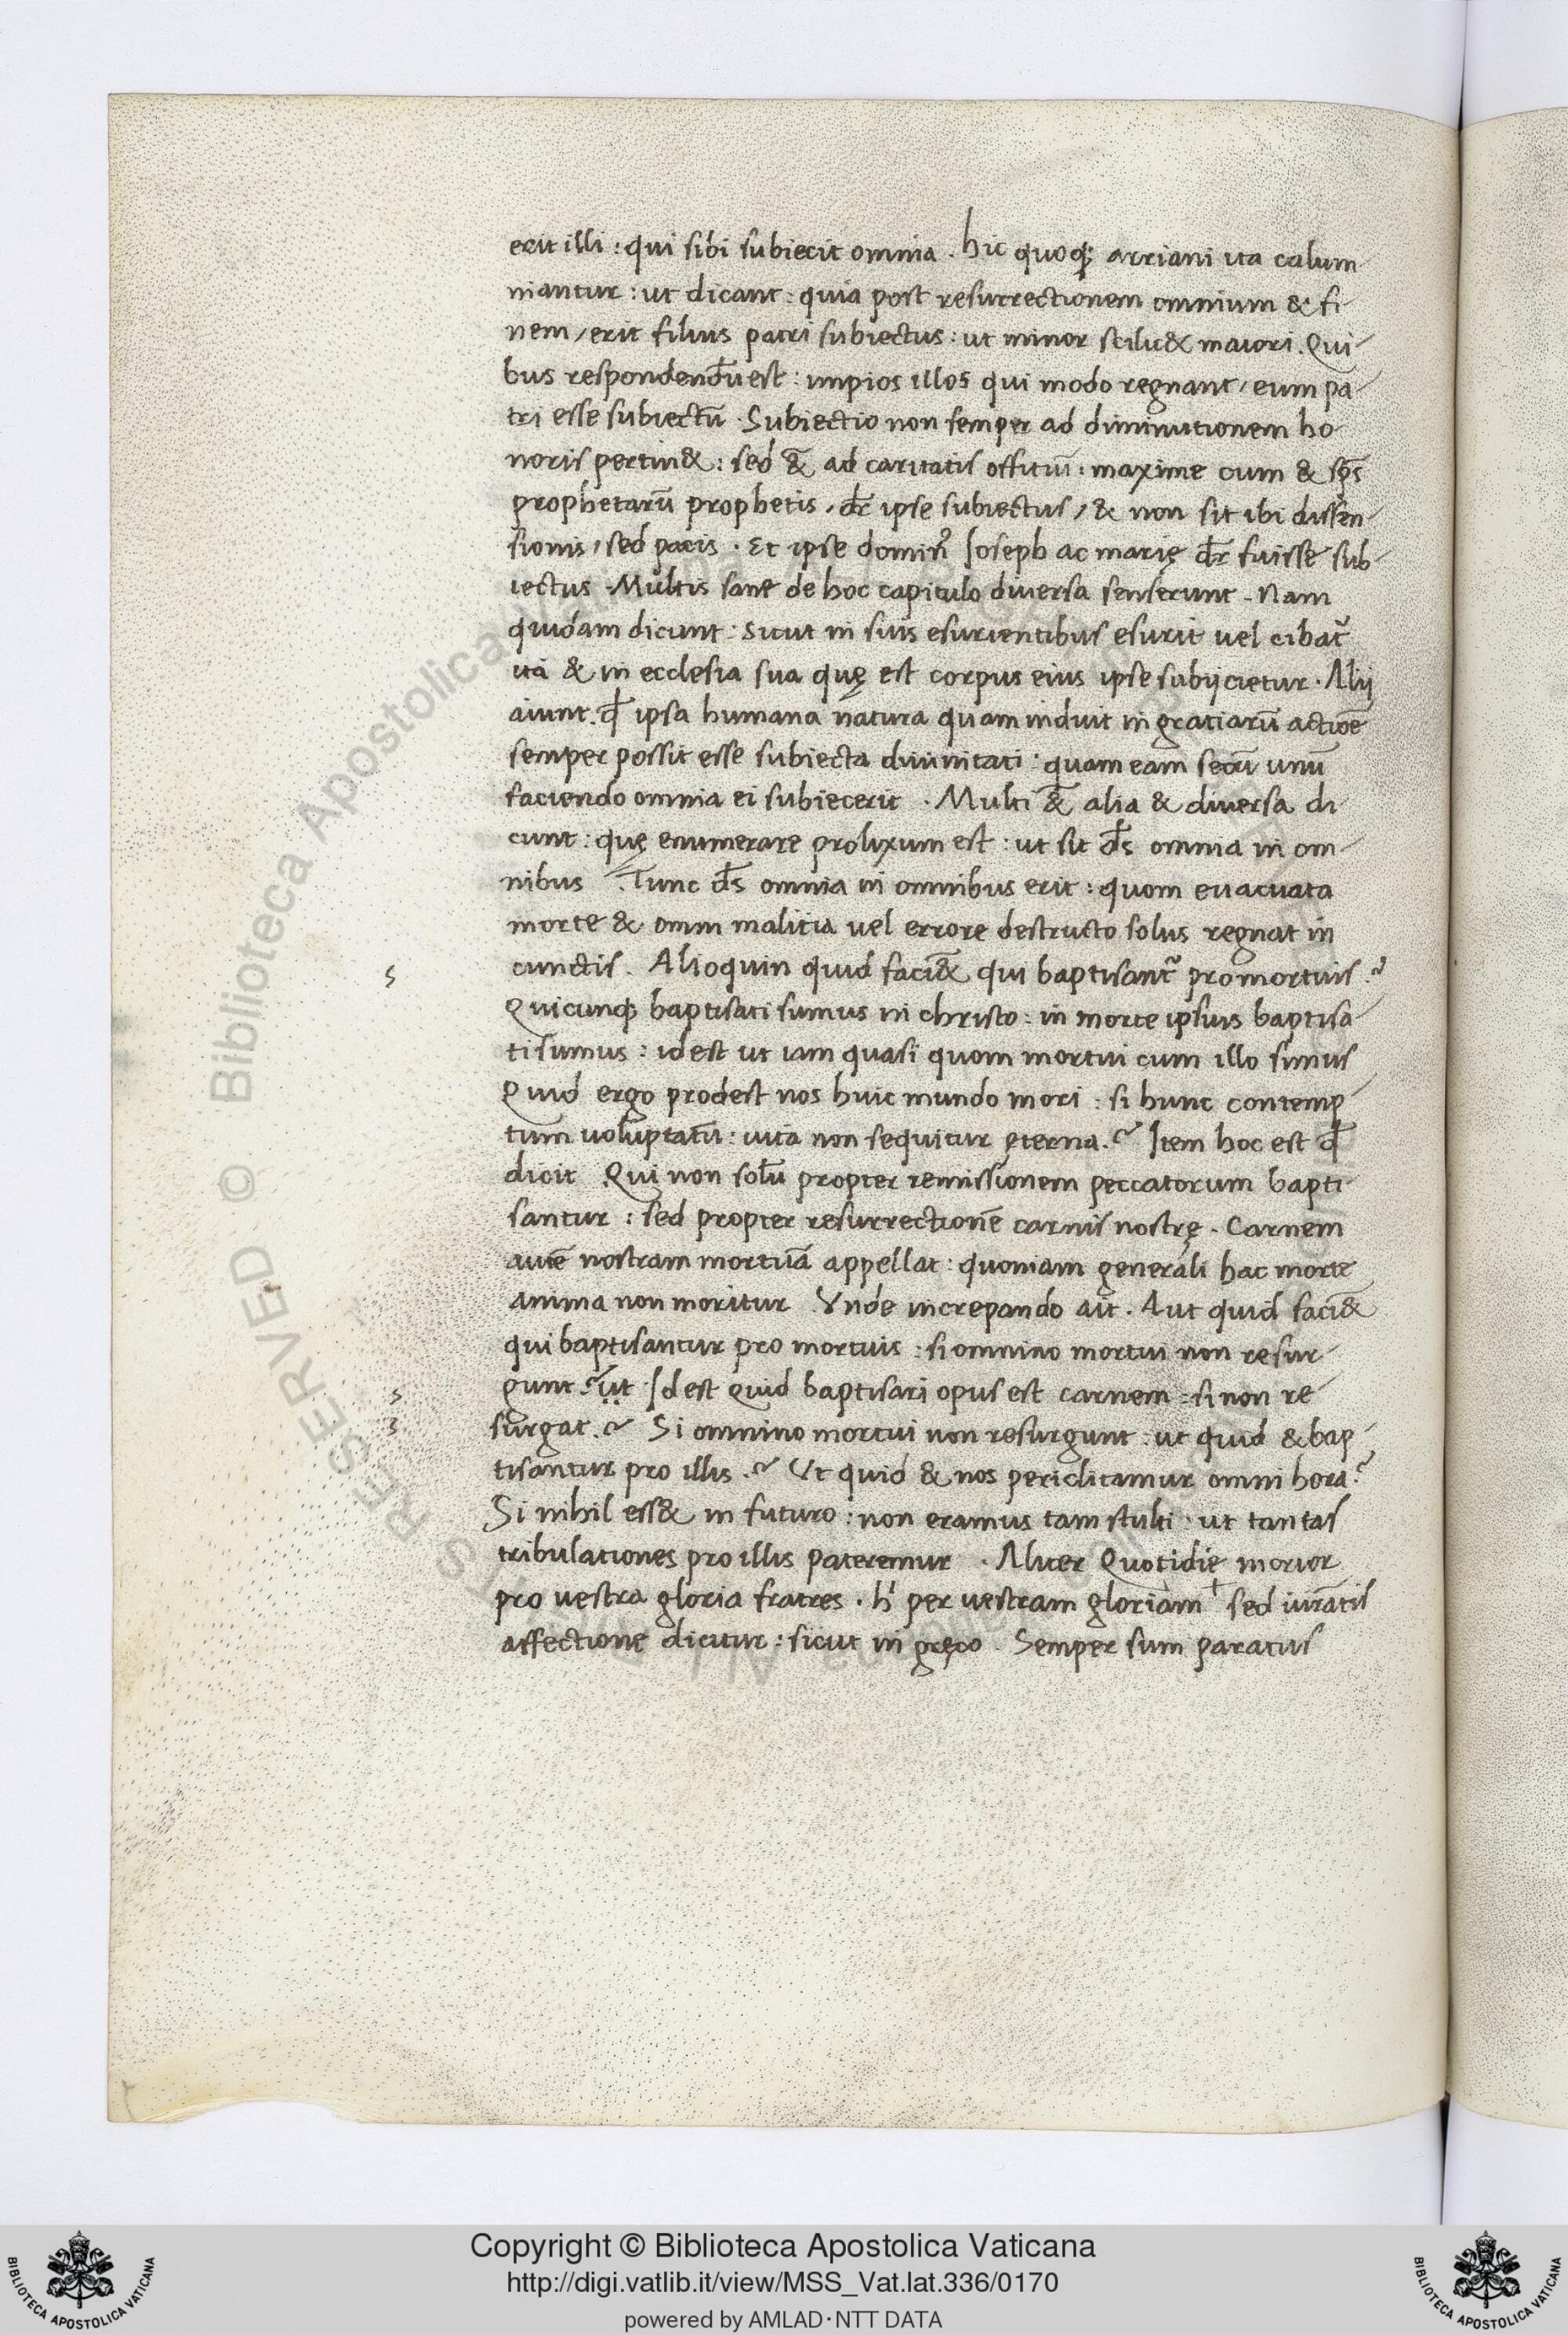 erit illi : qui sibi subiecit omnia . hic quoq; arriani ita calum-
niantur : ut dicant : quia post resurrectionem omnium & fi-
nem / erit filius patri subiectus : ut minor scilic& maiori . Qui-
bus respondendū est : impios illos qui modo regnant / eum pa-
tri esse subiectū . Subiectio non semper ad diminutionem ho-
noris pertin& : sed &̄ ad caritatis offitiū : maxime cum & sp̄s
prophetarū prophetis / dr̄ ipse subiectus / & non sit ibi dissen-
sionis / sed pacis . Et ipse domin᾽ Ioseph ac marię dr̄ fuisse sub-
iectus . Multis sane de hoc capitulo diversa senserunt . Nam
quidam dicunt : sicut in suis esurientibus esurit vel cibat᾽
ita & in ecclesia sua quę est corpus eius ipse subijcietur . Alij
aiunt . qd̄ ipsa humana natura quam induit in gratiarū actiōe
semper possit esse subiecta divinitati : quam eam secū unū
faciendo omnia ei subiecerit . Multi &̄ alia & diversa di-
cunt : quę enumerare prolixum est : ut sit ds̄ omnia in om-
nibus . Tunc ds̄ omnia in omnibus erit : quom evacuata
morte & omni malitia vel errore destructo solus regnat in
cunctis . Alioquin quid faci& qui baptisant᾽ pro mortuis ?
Quicunq; baptisati sumus in christo : in morte ipsius baptisa-
ti sumus : id est ut iam quasi quom mortui cum illo simus
Quid ergo prodest nos huic mundo mori : si hunc contemp-
tum voluptatū : vita non sequitur ęterna . ? Item hoc est qd̄
dicit . Qui non solū propter remissionem peccatorum bapti-
santur : sed propter resurrectionē carnis nostrę . Carnem
autē nostram mortuā appellat : quoniam generali hac morte
anima non moritur . Vnde increpando ait . Aut quid faci&
qui baptisantur pro mortuis : si omnino mortui non resur-
gunt ? ut Idest quid baptisari opus est carnem : si non re-
surgat . ? Si omnino mortui non resurgunt : ut quid & bap-
tisantur pro illis . ? Vt quid & nos periclitamur omni hora ?
Si nihil ess& in futuro : non eramus tam stulti : ut tantas
tribulationes pro illis pateremur . Aliter Quotidie morior
pro vestra gloria fratres . h᾽ per vestram gloriam sed iurātis
affectione dicitur : sicut in gręco . Semper sum paratus
Copyright © Biblioteca Apostolica Vaticana
http://digi.vatlib.it/view/MSS_Vat.lat.336/0170
powered by AMLAD·NTT DATA